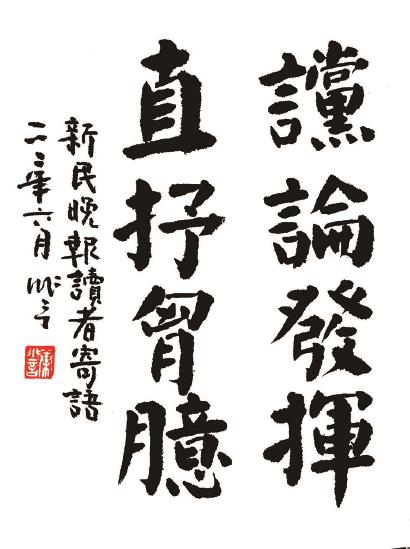 讜論發揮
直抒胷臆
新民晚報讀者寄語
年六月